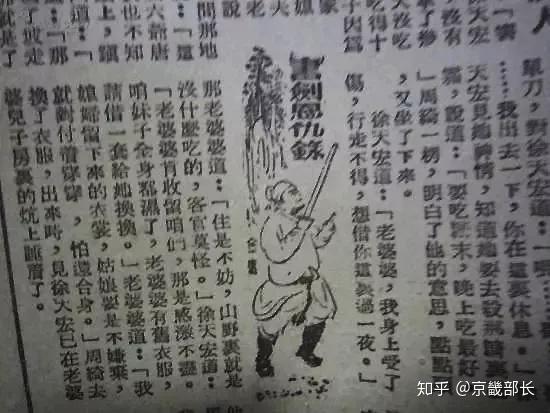 人
徐天宏
，沒有
沒吃
吃得十
子因爲
說
間那地
六爺唐
也不知
上，躓
道：「那
那就是了
單刀，對徐天宏道：「
……我出去一下，你在這裏休息。」
天宏見她神情，知道她要去
霜，說道：「要吃 末，晚上吃最好
」周綺一楞，明白了他的意思，點點
，又坐了下來。
徐天宏道：「老婆婆，我身上受了
傷，行走不得，想借你這裏過一夜。」
書劍恩仇錄
金庸
那老婆婆道：「住是不妨，山野裏就是
沒什麼吃的，客官莫怪。」徐天宏道：
「老婆婆肯收留咱們，那是感激不盡。
咱妹子全身都濕了，老婆婆有舊衣服，
請借一套給她換換。」老婆婆道：「我
媳婦留下來的衣裳，姑娘要是不嫌棄，
就對付着穿穿，怕還合身。」周綺去
換了衣服，出來時，見徐天宏已在老婆
婆兒子房裏的炕上睡着了。
知乎 @京畿部长